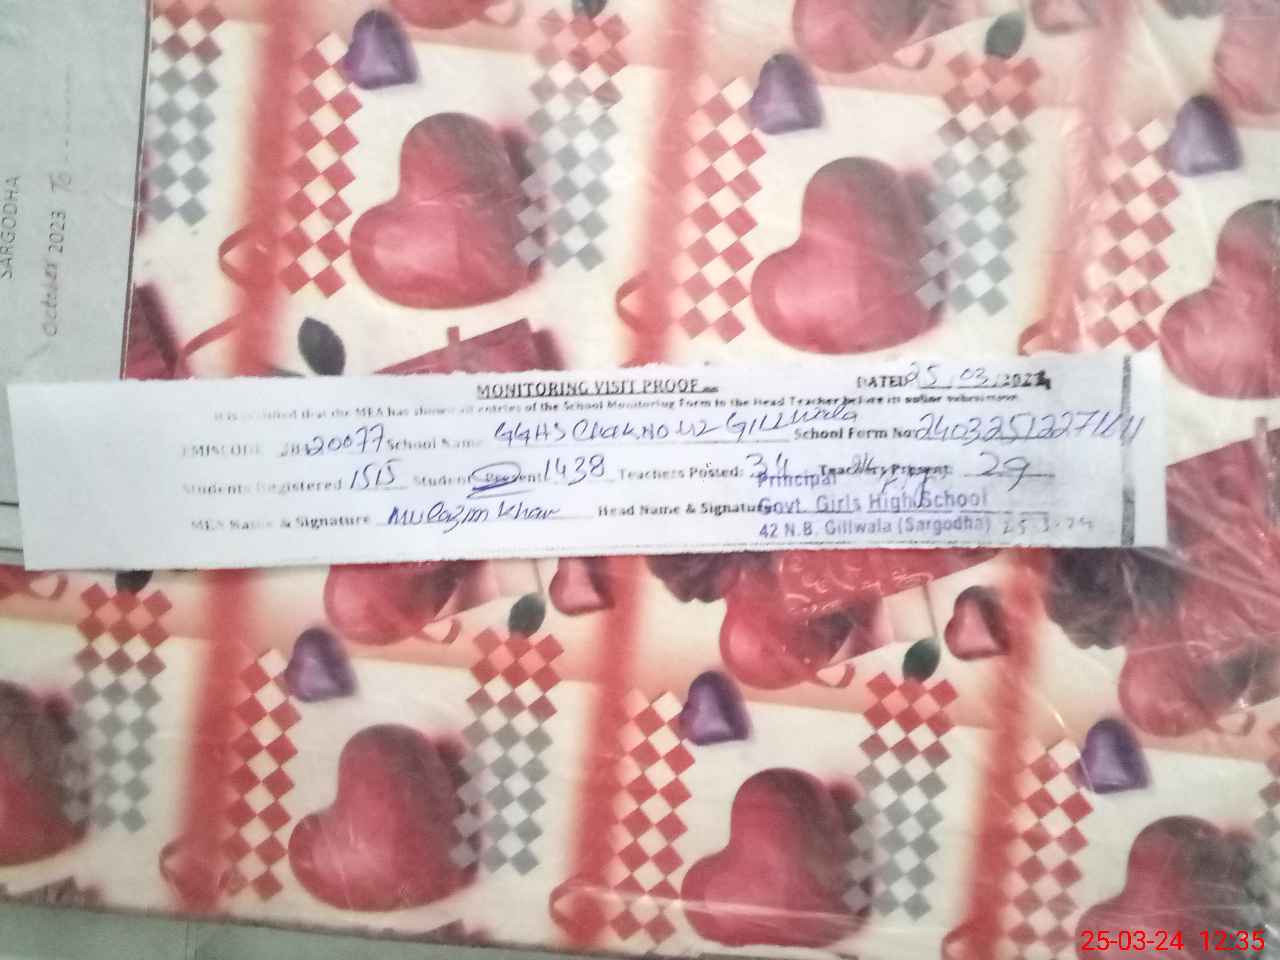 SARGODHA
October 2023 To
MONITORING VISIT PROOF
DATED 25, 03, 2024
It is certified that the MEA has shown entries of the School Monitoring Form to the Head Teacher before its online submission
EMISCODE 20077 School Name GGHS Chak.No 42 Gillwala School Form No:
Students Registered 1515 Student Present 1438 Teachers Posted: 34 Teachers Present: 29
MEA Name & Signature Mulazim Khan Head Name & Signature
Principal
Govt. Girls High School
42 N.B. Gillwala (Sargodha) 25-3-24
25-03-24 12:35